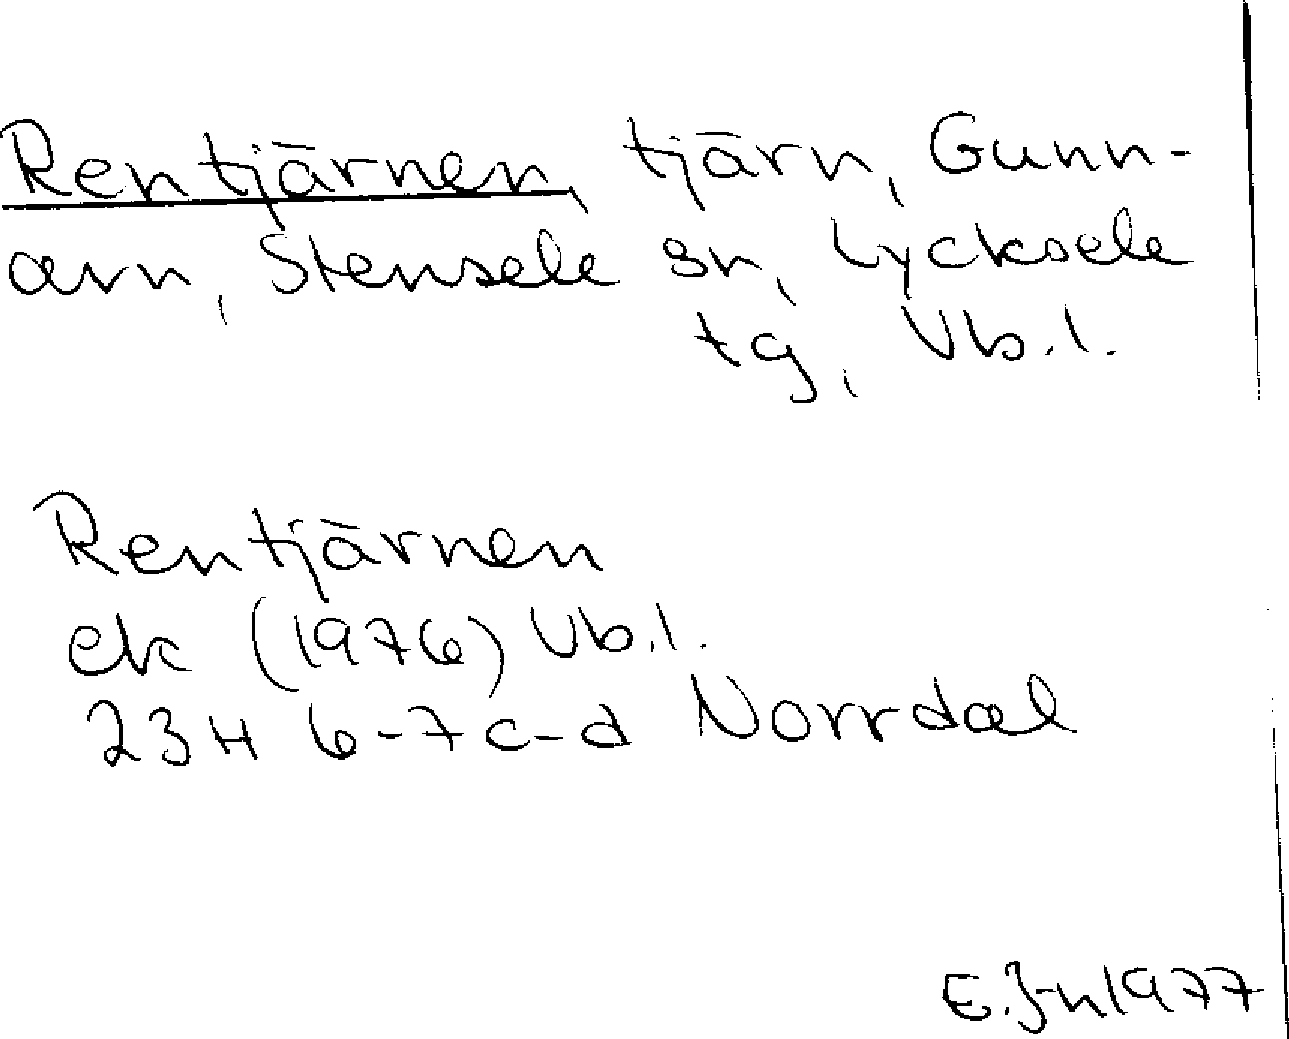 Rentjärnen, tjärn, Gunn-
arn, Stensele sn, Lycksele
tg, Vb.l.
Rentjärnen
ek (1976) Vb.l.
23H 6-7c-d Norrdal
E.J-n 1977